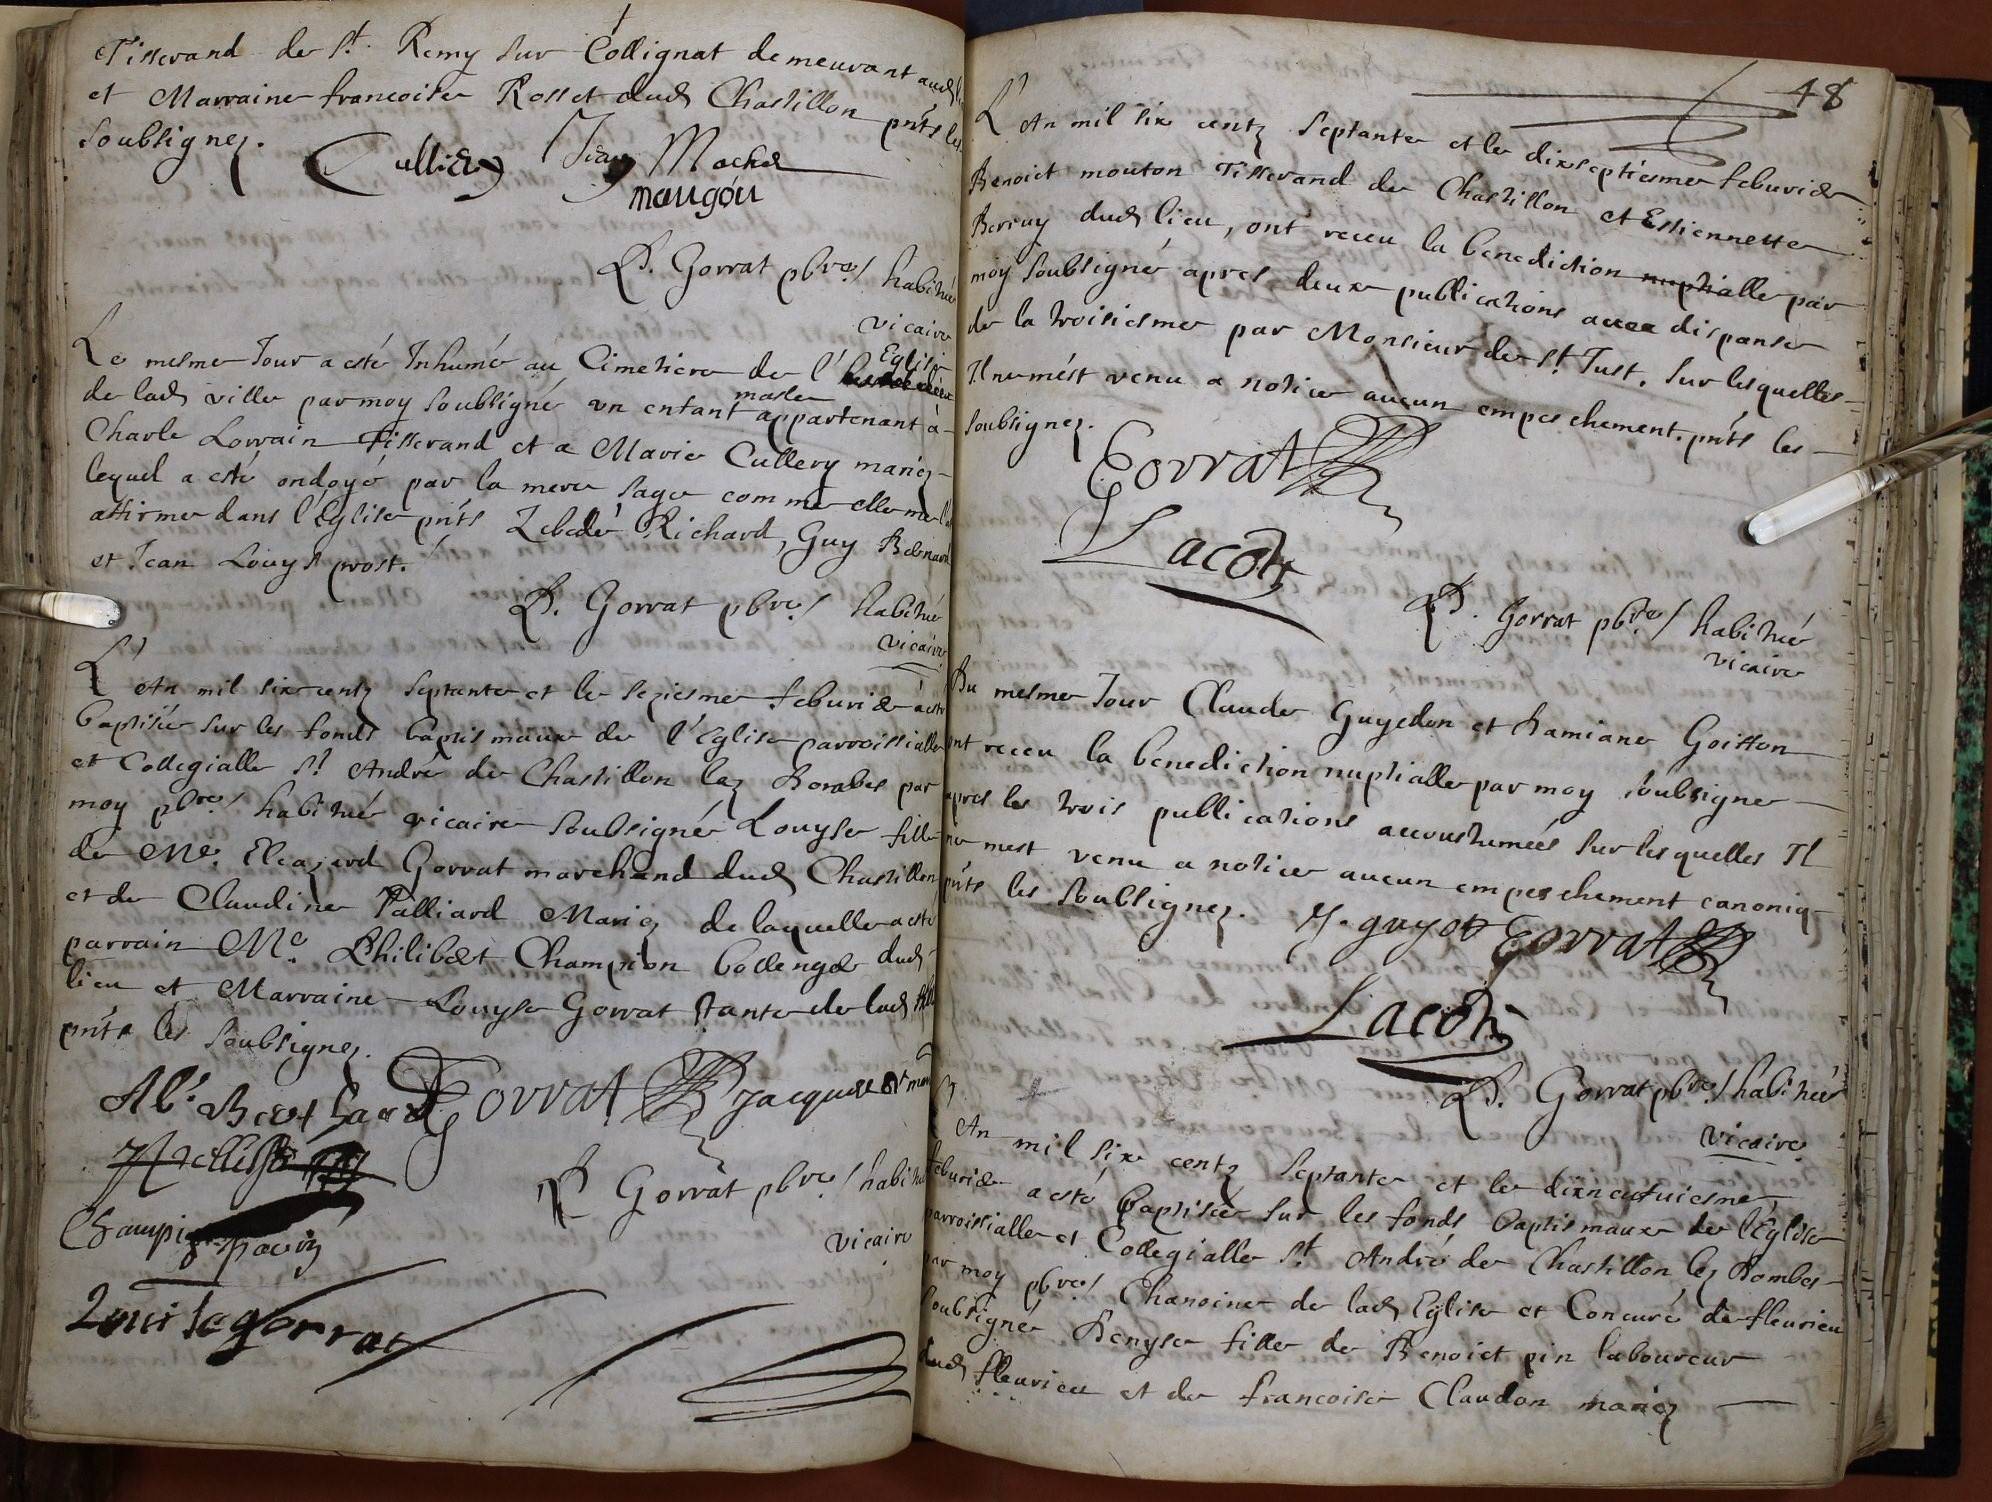 Tisserand de St. Remy sur Collignat demeurant aud.
et Marraine francoise Rosset dud Chastillon pnts les
soubsignez.
Cullier Jean Mochet
mangou
D. Gorrat pbre / habitué
vicaire
Le mesme Jour a esté Inhumé au Cimetiere de l' Eglise
de lad ville par moy soubsigné un enfant masle appartenant a
Charle Lorrain Tisserand et a Marie Cullery mariez
lequel a esté ondoyé par la mere sage comme elle me l'a
affirme dans l'Eglise pnts Zebedé Richard, Guy Bernard
et Jean Louys prost.
D. Gorrat pbre / habitué
vicaire
L'An mil six centz septante et le seziesme febvrier a esté
baptisée sur les fonds baptismaux de l'Eglise parroissialle
et Collegialle St André de Chastillon lez Dombes par
moy pbre / habitué vicaire soubsigné Louyse fille
de Me. Eleazard Gorrat marchand dud Chastillon
et de Claudine Palliard Mariez de laquelle a esté
parrain Me. Philibert Champion bollenger dud
lieu et Marraine Louyse Gorrat tante de lad fille
pnts les soubsignez.
Gorrat Jacques
D Gorrat pbre / habitué
vicaire
Champion
Louise gorrat
48
L'An mil six centz septante et le dixseptiesme febvrier
Benoict mouton Tisserand de Chastillon et Estiennette
Berruy dud lieu, ont receu la benediction nuptialle par
moy soubsigné apres deux publications avec dispanse
de la troisiesme par Monsieur de St. Just, sur lesquelles
Il ne m'est venu a notice aucun empeschement. pnts les
soubsignez.
Gorrat
Lacoste
D. Gorrat pbre / habitué
vicaire
Du mesme Jour Claude Guyedon et Damiane Goisson
ont receu la benediction nuptialle par moy soubsigne
apres les trois publications accoustumées sur lesquelles Il
ne mest venu a notice aucun empeschement canoniq
pnts les soubsignez. guyot Gorrat
Lacoste
D. Gorrat pbre / habitué
vicaire
L'An mil six centz septante et le dixneufviesme
febvrier a esté baptisée sur les fonds baptismaux de l'Eglise
parroissialle et Collegialle St. André de Chastillon lez Dombes
par moy pbre / Chanoine de lad Eglise et Concuré de fleurieu
soubsigné Denyse fille de Benoict pin laboureur
dud fleurieu et de francoise Claudon mariez